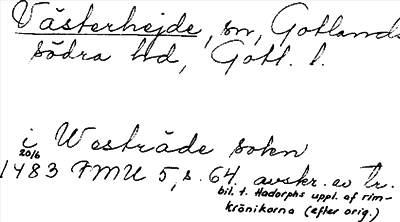 Västerhejde, sn, Gotlands
södra hd, Gotl. l.
i Westräde soken
20/6
1483 FMU 5, s. 64. avskr. av tr.
bil. t. Hadorphs uppl. af rim-
krönikorna (efter orig.)